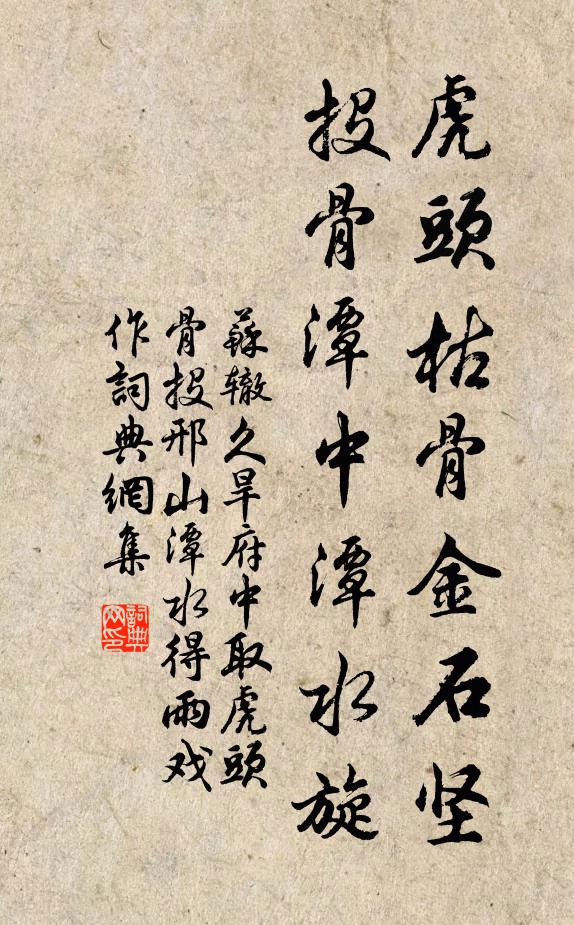 虎頭枯骨金石坚
投骨潭中潭水旋
蘇辙久旱府中取虎頭
骨投邢山潭水得雨戏
作詞典網集
詞典网印